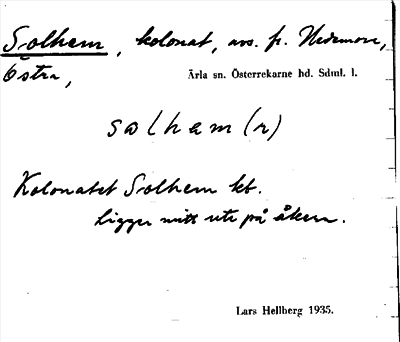 Solhem, kolonat, avs. fr. Nedemora,
Östra,
Ärla sn. Österrekarne hd. Sdml. l.
solham (r)
Kolonatet Solhem kt.
Ligger mitt ute på åkern.
Lars Hellberg 1935.